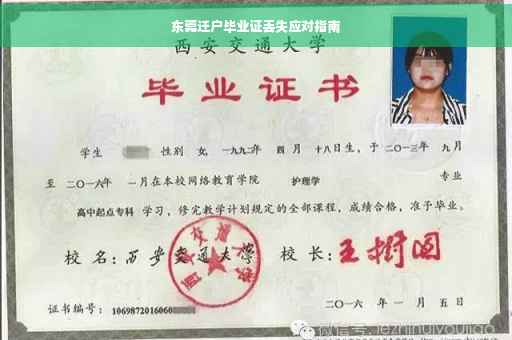 东莞迁户毕业证丢失应对指南
西安交通大学
毕业证书
学生 性别 女，一九九二年 四月 十八日生，于二〇一三年 九月
至 二〇一六年 一月在本校网络教育学院 护理学 专业
高中起点专科 学习，修完教学计划规定的全部课程，成绩合格，准予毕业。
校名：西安交通大学 校长：王树国
西安交通大学
证书编号：1069872016060
二〇一六年一月五日
微信号: jezhinuiyoujiao